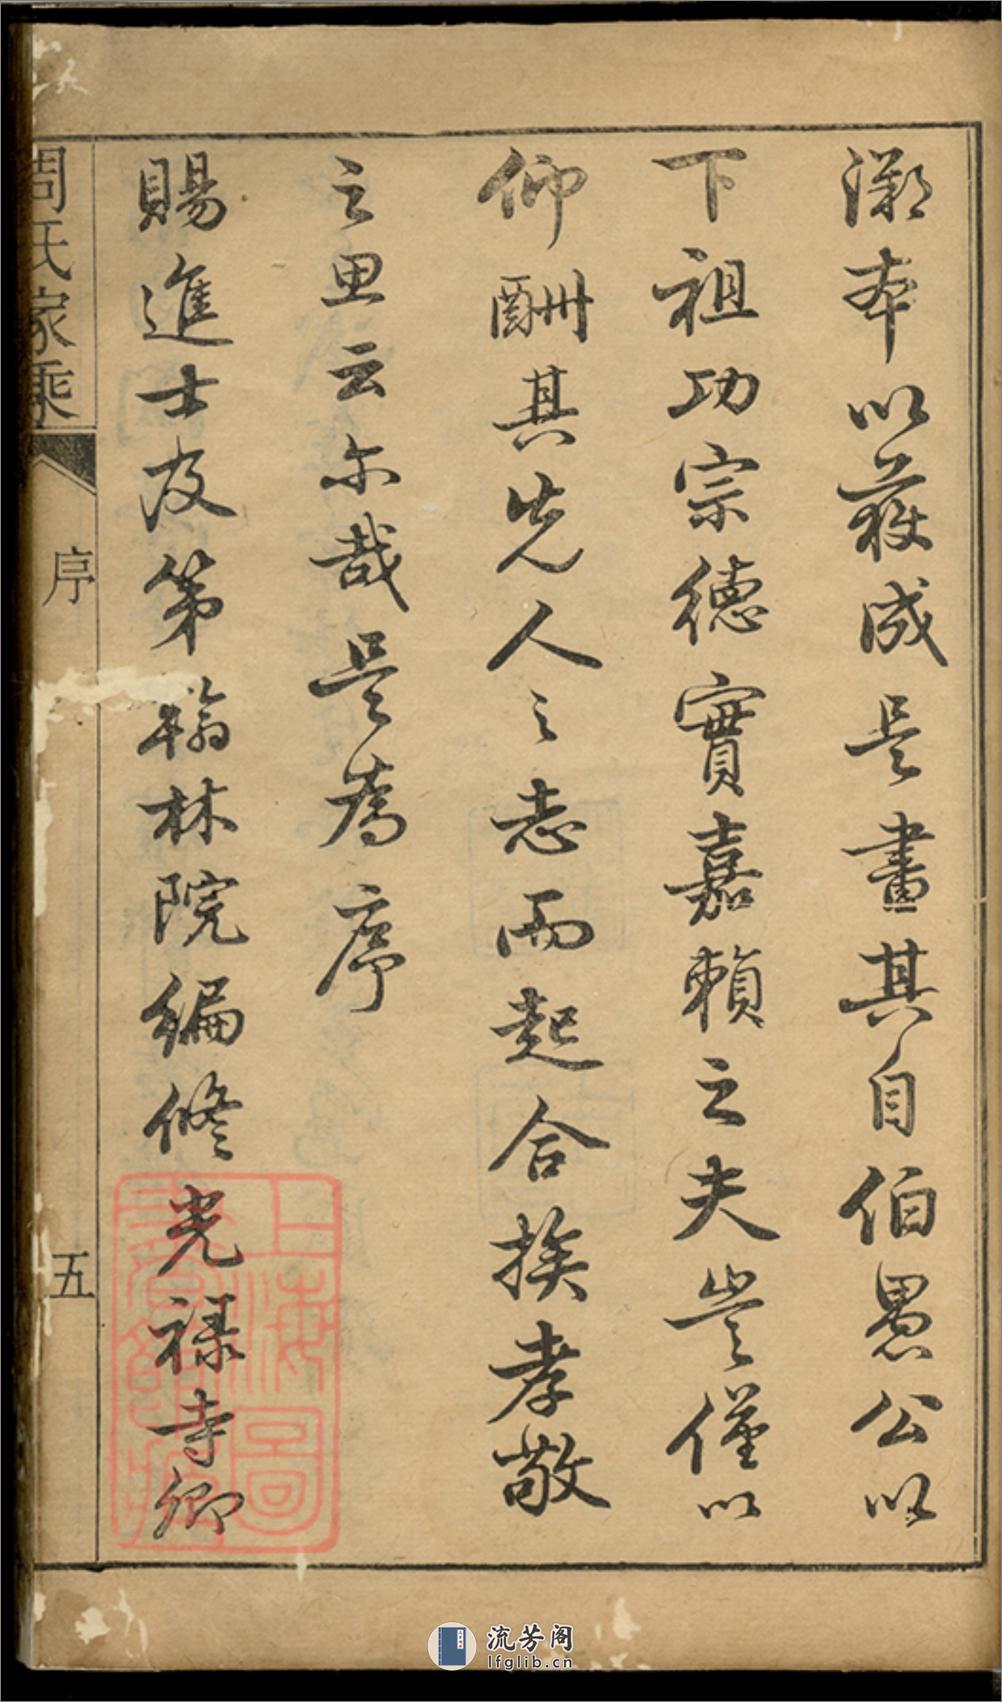 灝本以蕆成是畫其自伯愚公以
下祖功宗德實嘉賴之夫豈僅以
仰酬其先人之志而起合族孝敬
之思云尔哉是為序
賜進士及第翰林院編修光祿寺卿
周氏家乘
序
五
上海圖
書館藏
流芳阁
lfglib.cn